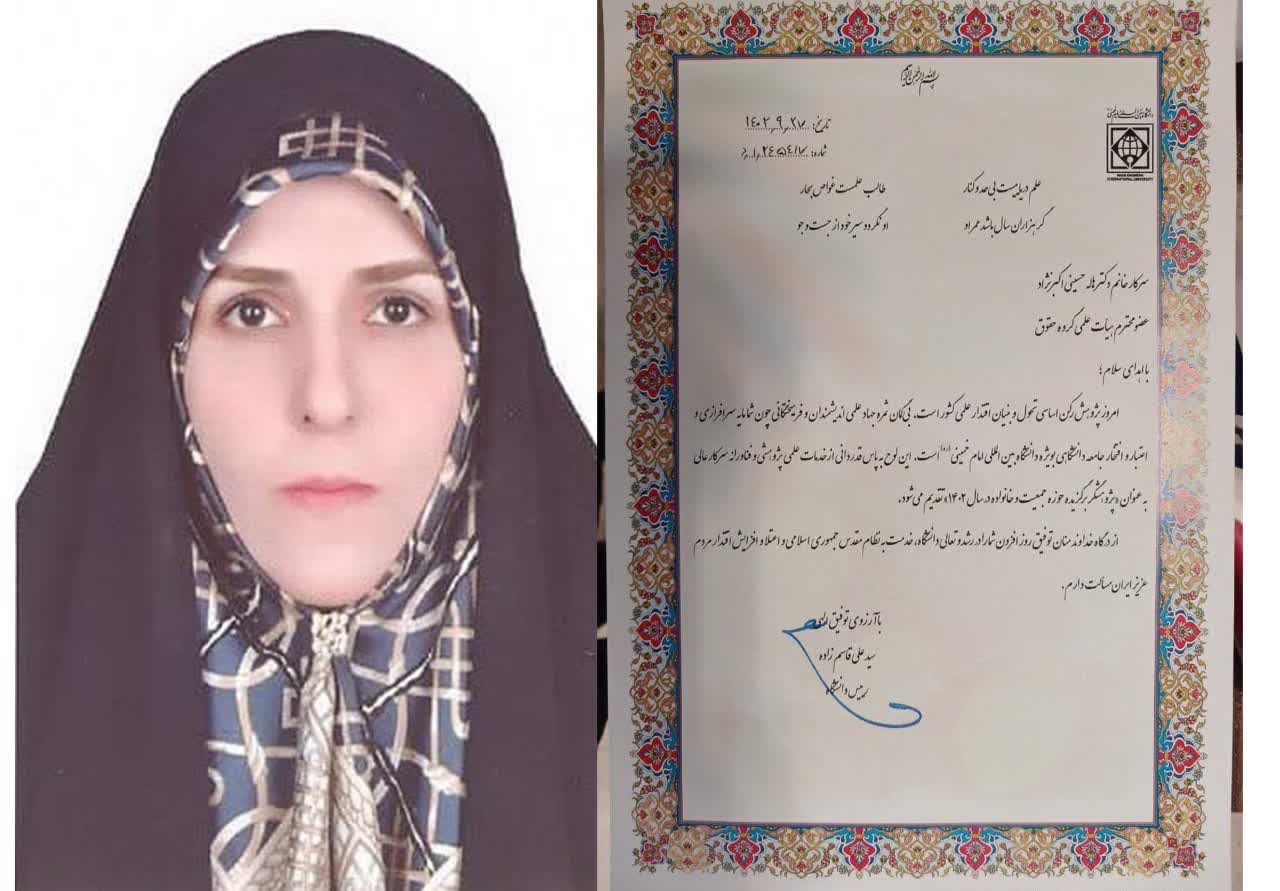 بسم الله الرحمن الرحیم
دانشگاه بین المللی امام خمینی
IMAM KHOMEINI
INTERNATIONAL UNIVERSITY
تاریخ: ۱٤۰۲،۹،۲۷
شماره:
علم دریاییست بی حد و کنار طالب علمست غواص بحار
گر هزاران سال باشد عمر او او نگردد سیر خود از جست و جو
سرکار خانم دکتر هاله حسینی اکبرنژاد
عضو محترم هیأت علمی گروه حقوق
با اهدای سلام؛
امروز پژوهش رکن اساسی تحول و بنیان اقتدار علمی کشور است. بی‌گمان ثمره جهاد علمی اندیشمندان و فرهیختگانی چون شما مایه سرافرازی و
اعتبار و افتخار جامعه دانشگاهی بویژه دانشگاه بین المللی امام خمینی (ره) است. این لوح به پاس قدردانی از خدمات علمی پژوهشی و فناورانه سرکار عالی
به عنوان «پژوهشگر برگزیده حوزه جمعیت و خانواده در سال ۱۴۰۲» تقدیم می‌شود.
از درگاه خداوند منان توفیق روز افزون شما را در رشد و تعالی دانشگاه، خدمت به نظام مقدس جمهوری اسلامی و اعتلا و افزایش اقتدار مردم
عزیز ایران مسألت دارم.
با آرزوی توفیق الهی
سید علی قاسم زاده
رییس دانشگاه